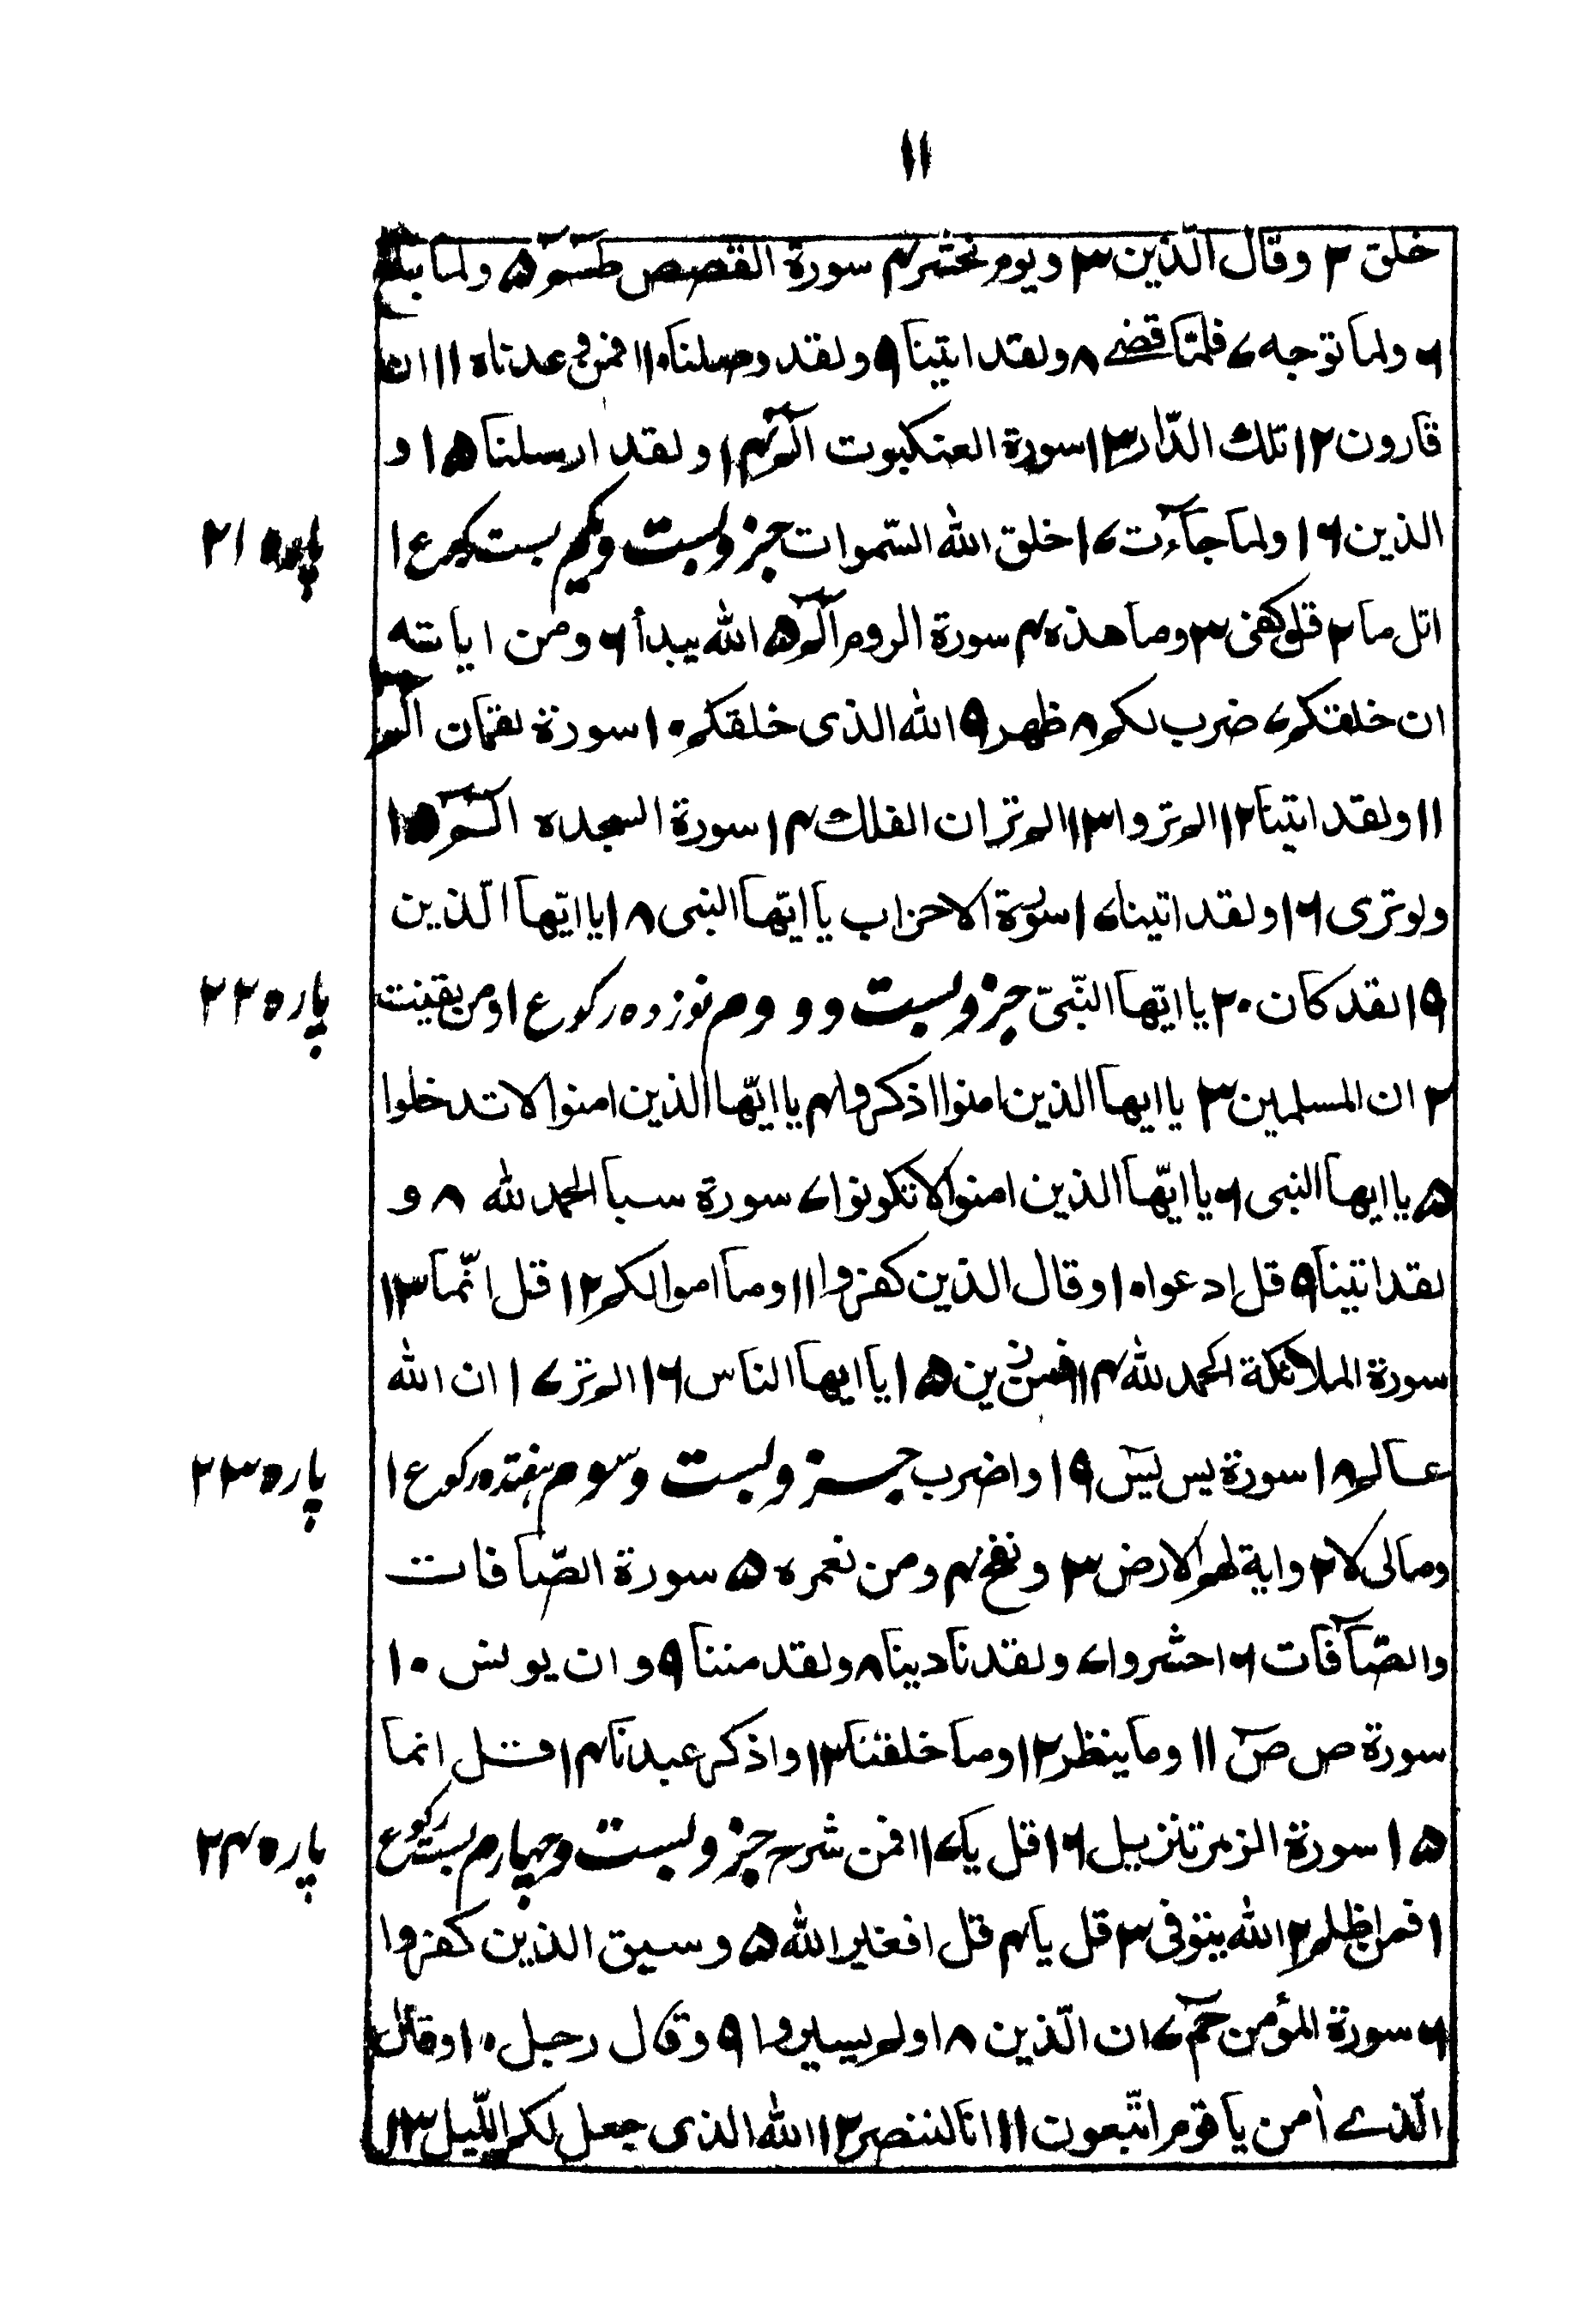 ۱۱
خلق ۲ وقال الّذین ۳ ویوم نحشر ۴ سورة القصص طسٓمٓ ۵ ولما بلغ
۶ ولما توجه ۷ فلمّا قضے ۸ ولقد اتینا ۹ ولقد وصلنا ۱۰ افمن وعدناه ۱۱ ان
قارون ۱۲ تلك الدّار ۱۳ سورة العنكبوت الٓمٓ ۱۴ ولقد ارسلنا ۱۵ و
الذین ۱۶ ولما جآءت ۱۷ خلق الله السّموات جزو بست ویکم بست رکوع ۱
پاره ۲۱
اتل ما ۲ قل كفى ۳ وما هذه ۴ سورة الروم الٓمٓ ۵ الله یبدأ ۶ ومن ایاته
ان خلقتکم ۷ ضرب لکم ۸ ظهر ۹ الله الذی خلقکم ۱۰ سورة لقمان الٓمٓ
۱۱ ولقد اتینا ۱۲ الم تروا ۱۳ الم تر ان الفلك ۱۴ سورة السجده الٓمٓ ۱۵
ولو تری ۱۶ ولقد اتینا ۱۷ سورة الاحزاب یا ایّها النبی ۱۸ یا ایّها الّذین
۱۹ لقد کان ۲۰ یا ایّها النّبیّ جزو بست و دوم نوزده رکوع ۱ ومن یقنت
پاره ۲۲
۲ ان المسلمین ۳ یا ایها الذین امنوا اذکروا ۴ یا ایّها الذین امنوا لا تدخلوا
۵ یا ایها النبی ۶ یا ایّها الذین امنوا لا تکونوا ۷ سورة سبا الحمد لله ۸ و
لقد اتینا ۹ قل ادعوا ۱۰ وقال الذین کفروا ۱۱ وما اموالکم ۱۲ قل انّما ۱۳
سورة الملائکة الحمد لله ۱۴ افمن زین ۱۵ یا ایها الناس ۱۶ الم تر ۱۷ ان الله
عالم ۱۸ سورة یس یٓسٓ ۱۹ واضرب جزو بست و سوم هفتده رکوع ۱
پاره ۲۳
ومالی لا ۲ وایة لهم الارض ۳ ونفخ ۴ ومن نعمره ۵ سورة الصّافات
والصّآفات ۶ احشروا ۷ ولقد نادینا ۸ ولقد مننا ۹ وان یونس ۱۰
سورة ص صٓ ۱۱ وما ینظر ۱۲ وما خلقنا ۱۳ واذکر عبدنا ۱۴ قل انما
۱۵ سورة الزمر تنزیل ۱۶ قل یا ۱۷ افمن شرح جزو بست و چهارم بست رکوع
پاره ۲۴
۱ فمن اظلم ۲ الله یتوفی ۳ قل یا ۴ قل افغیر الله ۵ وسیق الذین کفروا
۶ سورة المؤمن حٓمٓ ۷ ان الّذین ۸ اولم یسیروا ۹ وقال رجل ۱۰ وقال
الّذے اٰمن یا قوم اتّبعون ۱۱ انا لننصر ۱۲ الله الذی جعل لکم اللّیل ۱۳